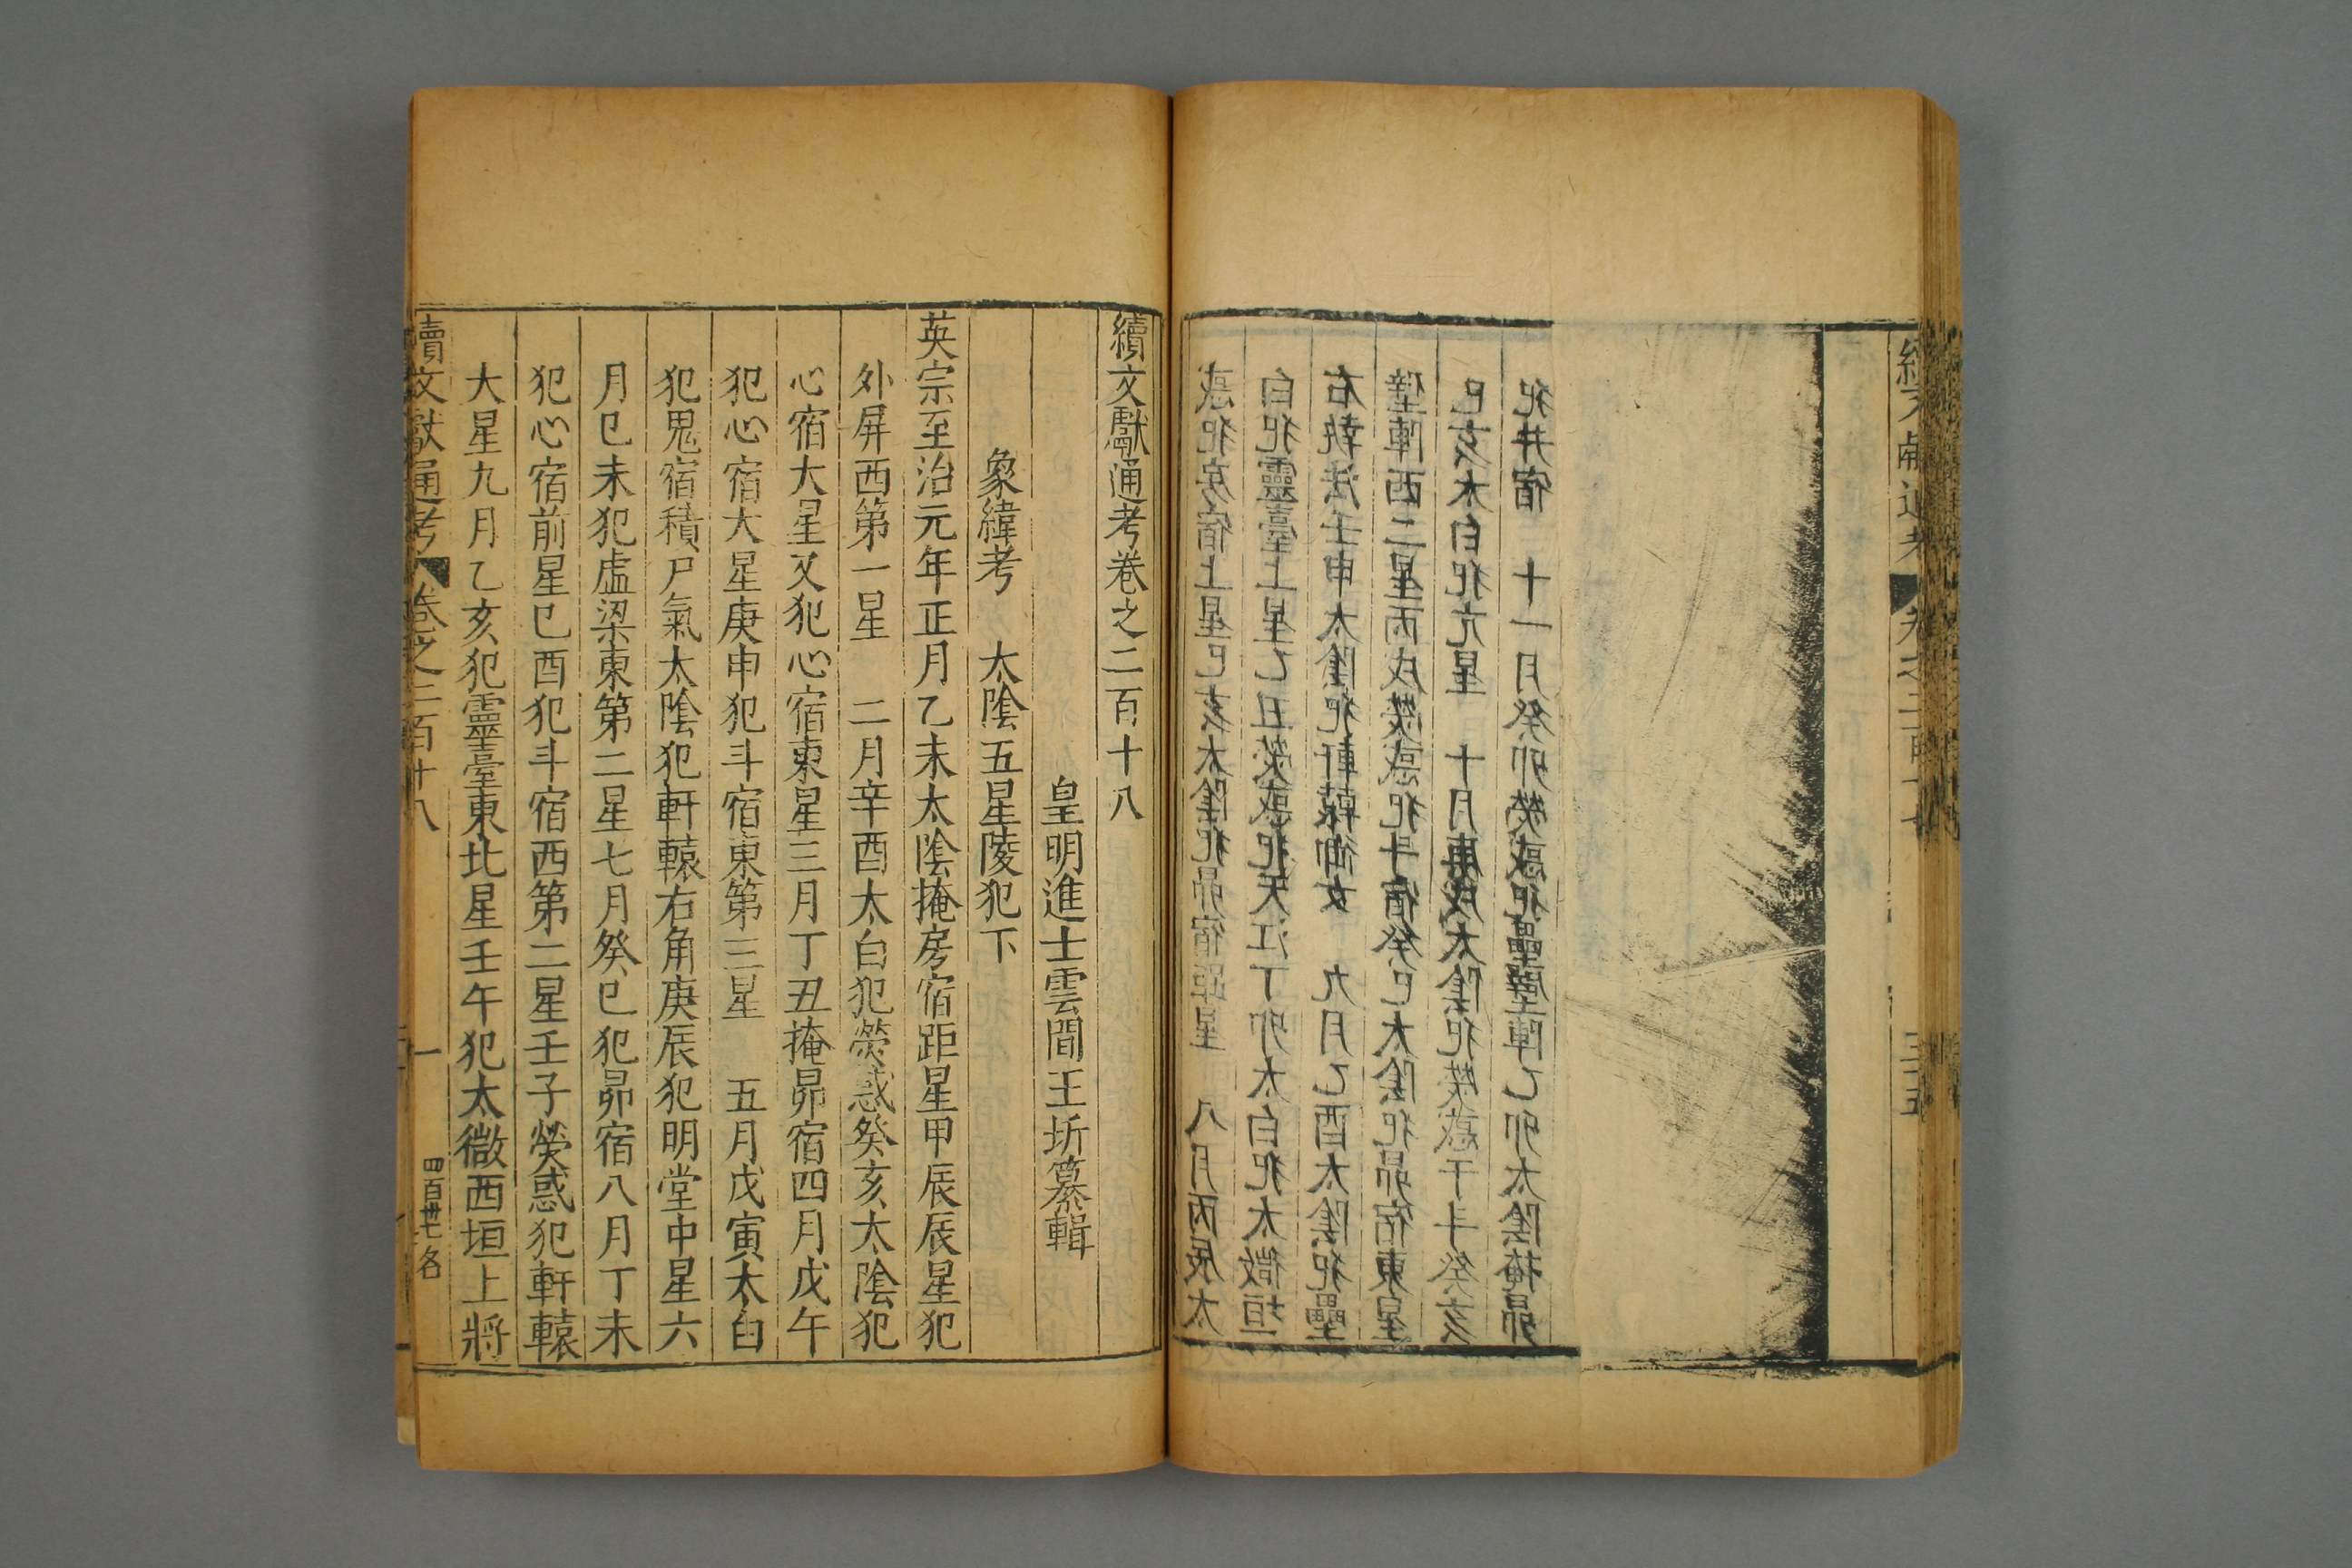 惑犯房宿上星巳亥太陰犯昴宿距星 八月丙辰太
白犯靈臺上星乙丑熒惑犯天江丁卯太白犯太微垣
右執法壬申太陰犯軒轅御女 九月乙酉太陰犯壘
壁陣西二星丙戌熒惑犯斗宿癸巳太陰犯昴宿東星
巳亥太白犯亢星 十月庚戌太陰犯熒惑于斗癸亥
犯井宿 十一月癸卯熒惑犯壘壁陣乙卯太陰掩昴
續文獻通考卷之二百十八
皇明進士雲間王圻纂輯
象緯考 太陰五星陵犯下
英宗至治元年正月乙未太陰掩房宿距星甲辰辰星犯
外屏西第一星 二月辛酉太白犯熒惑癸亥太陰犯
心宿大星又犯心宿東星三月丁丑掩昴宿四月戊午
犯心宿大星庚申犯斗宿東第三星 五月戊寅太白
犯鬼宿積尸氣太陰犯軒轅右角庚辰犯明堂中星六
月巳未犯虛梁東第二星七月癸巳犯昴宿八月丁未
犯心宿前星巳酉犯斗宿西第二星壬子熒惑犯軒轅
大星九月乙亥犯靈臺東北星壬午犯太微西垣上將
續文獻通考 卷之二百十八 一 四百卅七 各